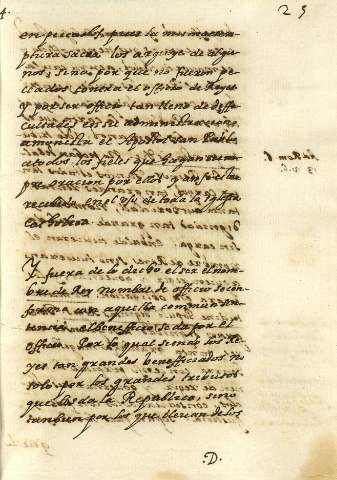 4.
25
en peccados, pues la misma escri
ptura sacra los arguye de algu
nos; sino por que no fueron pe
ccados contra el officio de Reyes
Y por ser officio tan lleno de diffi
cultades en su administracion,
amonesta el Apostol san Pablo
a todos los fieles que hagan siem
pre oracion por ellos y ansi esta
recibido en el uso de toda la Iglesia
Catholica.
Y fuera de lo dicho el ser el nom
bre de Rey nombre de officio se con
firma con aquella commun sen
tencia, el beneficio se da por el
officio. Por lo qual siendo los Re
yes tan grandes benefficiados no
solo por los grandes tributos
que les da la Republica, sino
tambien por los que llevan de los
.D.